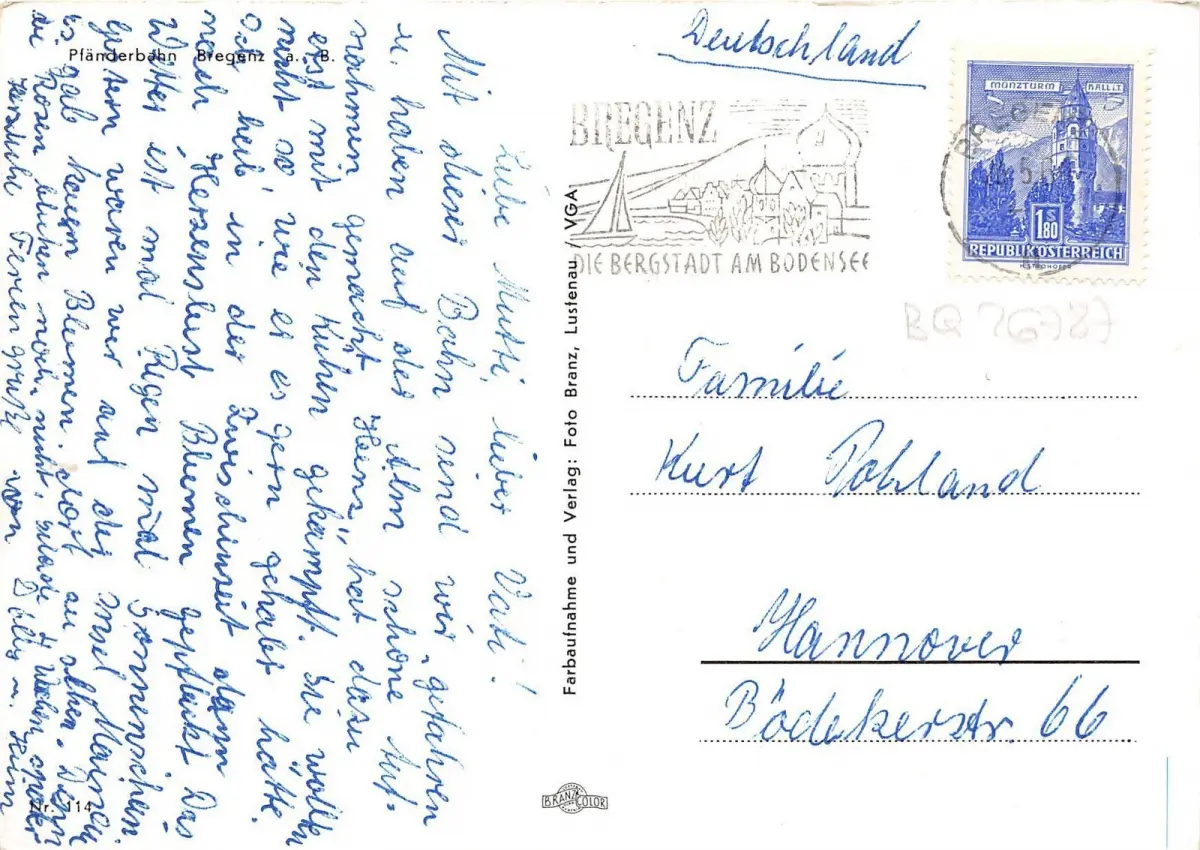 Pfänderbahn Bregenz a. B.
Liebe Mutti, lieber Vati!
Mit dieser Bahn sind wir gefahren
u. haben auf der Alm schöne Auf-
nahmen gemacht. Heinz hat dazu
erst mit den Kühen gekämpft. Sie wollten
nicht so, wie er es gern gehabt hätte.
Ode hab' in der Zwischenzeit dann
nach Herzenslust Blumen gepflückt. Das
Wetter ist mal Regen mal Sonnenschein.
Gestern waren wir auf der Insel Mainau
es gab kaum Blumen dort zu sehen. Denn
die Rosen blühen noch nicht, Wochen später
Herzliche Feriengrüße von
Nr. 114
Farbaufnahme und Verlag: Foto Branz, Lustenau / VGA
BRANZ COLOR
Deutschland
BREGENZ
DIE BERGSTADT AM BODENSEE
MÜNZTURM HALL i.T.
S
1.80
REPUBLIK ÖSTERREICH
BREGENZ
BQ 26787
Familie
Kurt Pohland
Hannover
Bödekerstr. 66